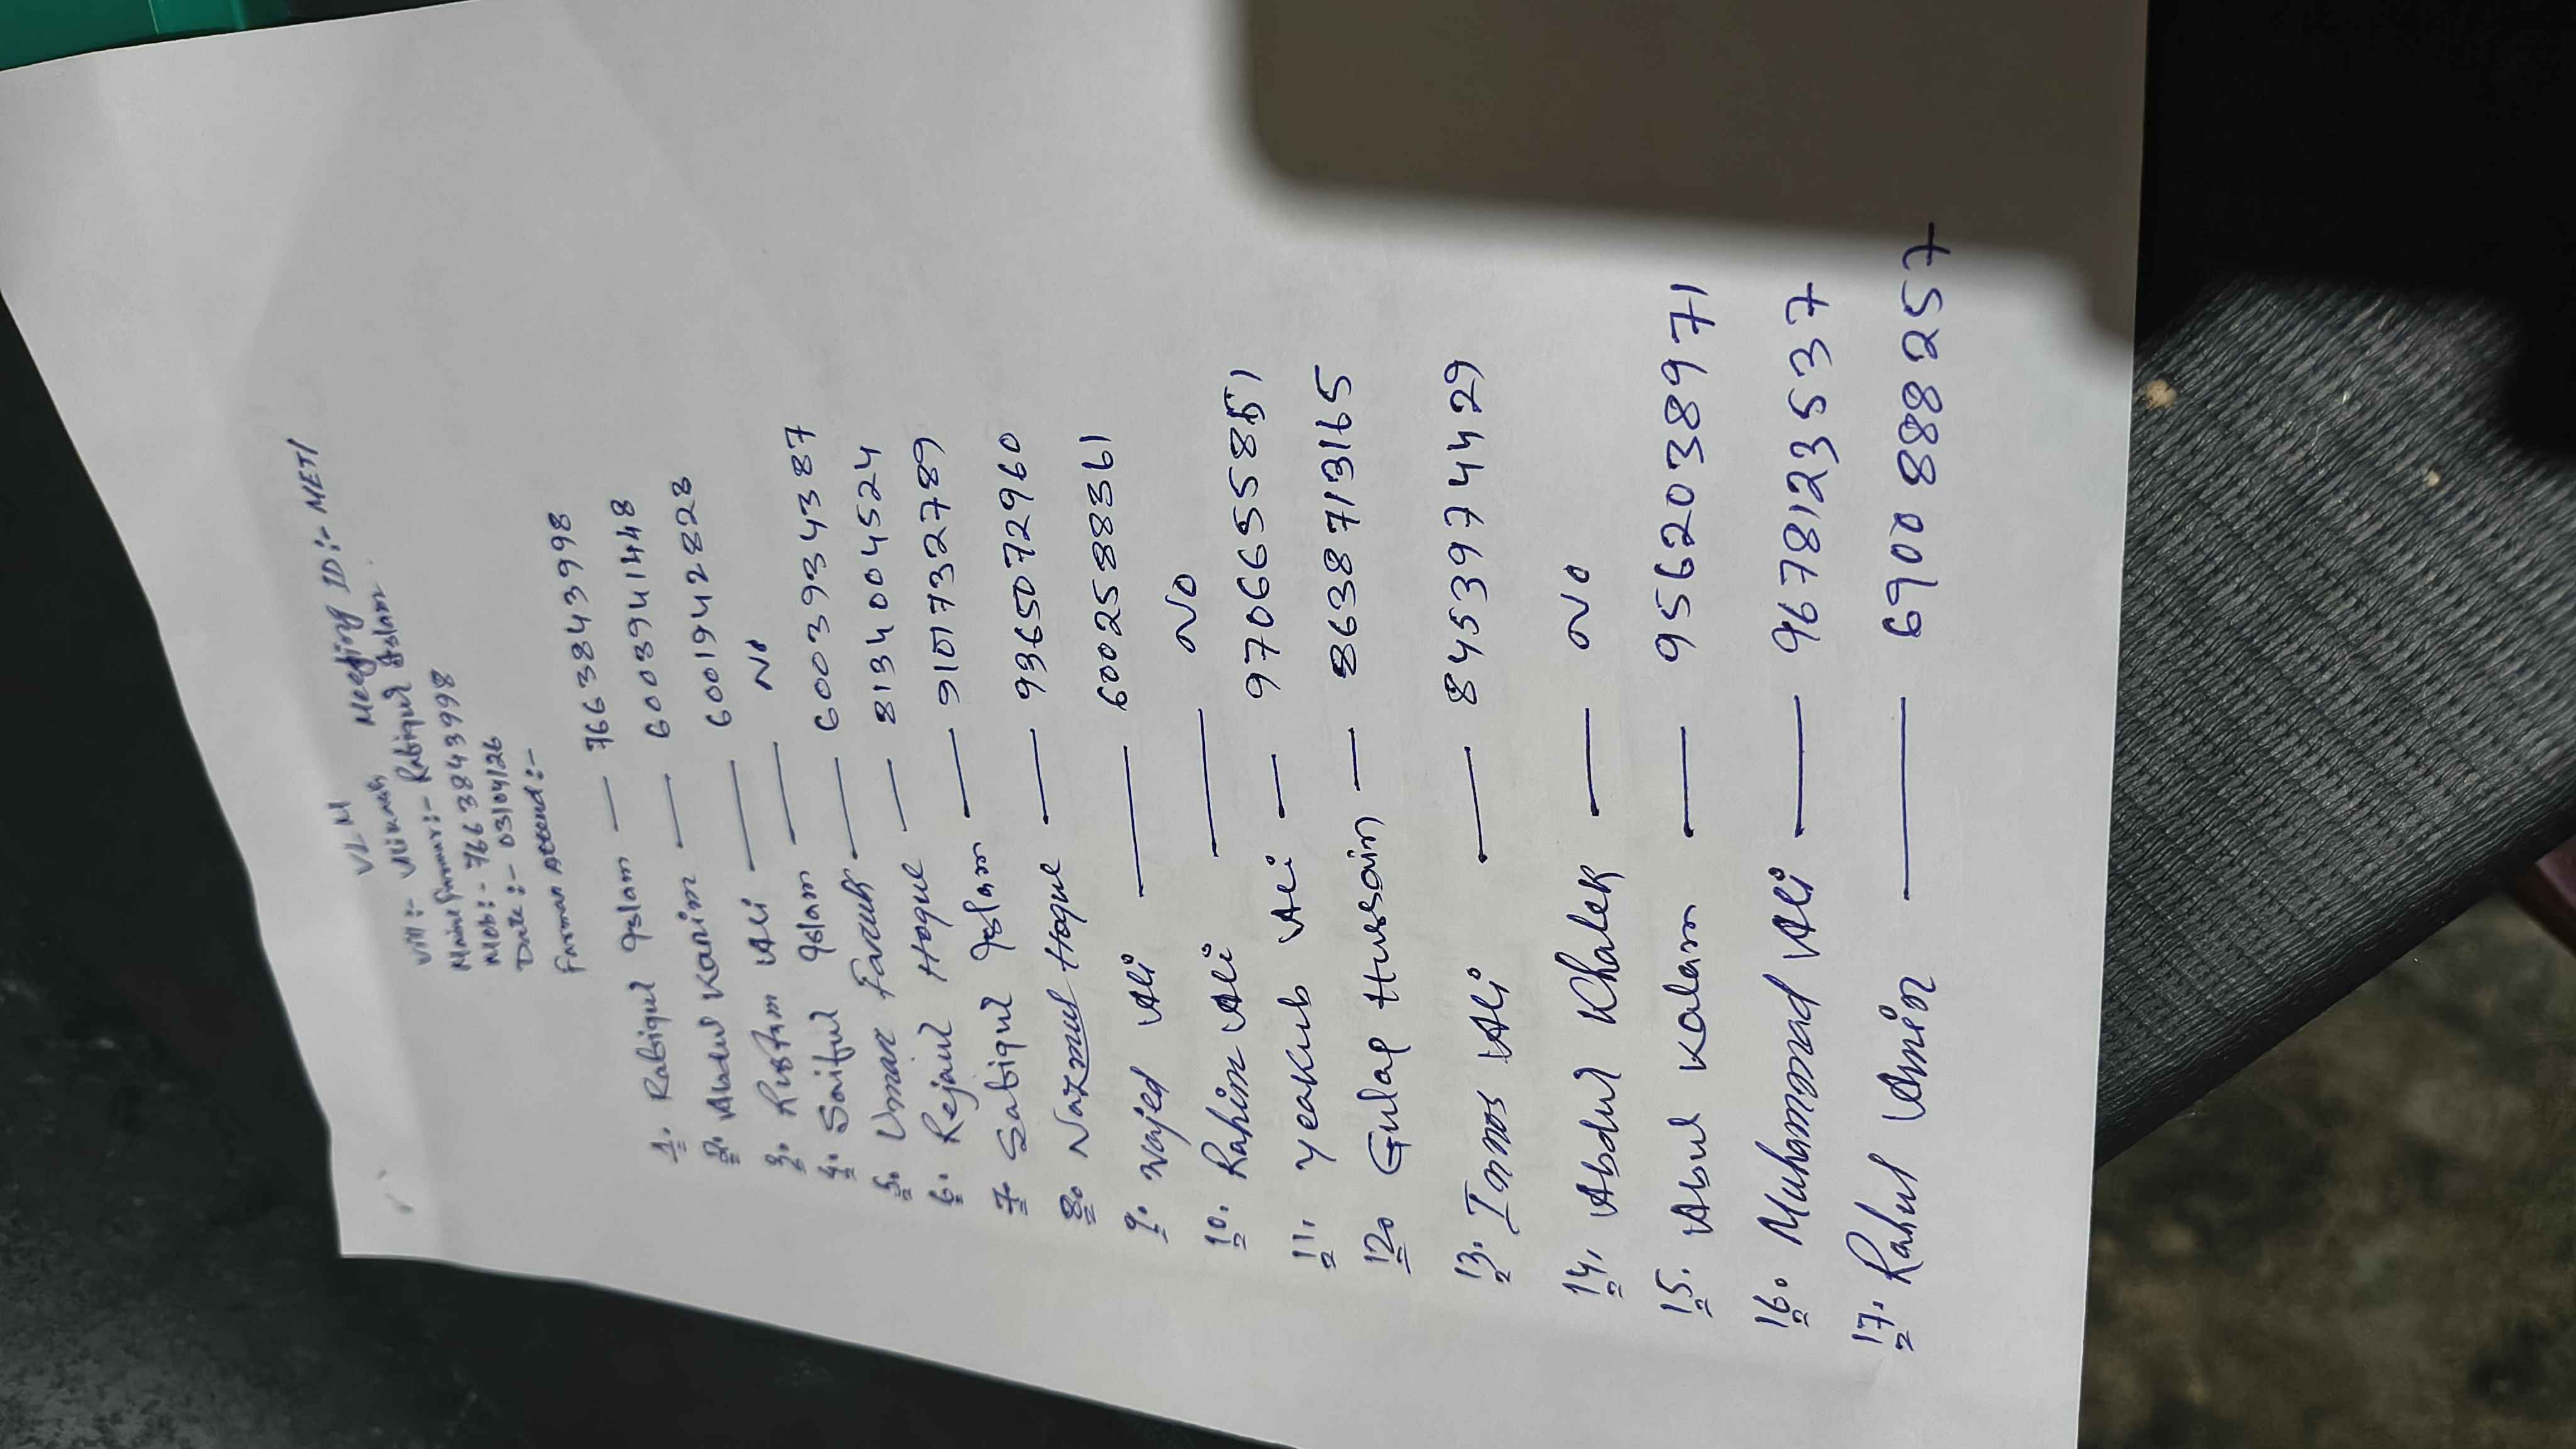 VLM Meeting ID:- MET1
Vill:- Rabiqul Islam
Main farmar:-
Mob:- 7663843998
Date:- 03/04/26
Farmar Attend:-
1. Rabiqul Islam — 7663843998
2. Abdul Karim — 6003941448
3. Rustam Ali — 6001942828
4. Saiful Islam — No
5. Umar Faruk — 6003934387
6. Rejaul Hoque — 8134004524
7. Sabiqul Islam — 9101732789
8. Nazmul Hoque — 9365072960
9. Wajed Ali — 6002588361
10. Rahim Ali — No
11. Yeakub Ali — 9706655851
12. Gulap Hussain — 8638713165
13. Innos Ali — 8453974429
14. Abdul Khalek — No
15. Abul Kalam — 9562038971
16. Muhammad Ali — 9678123537
17. Rahul Amin — 6900888257